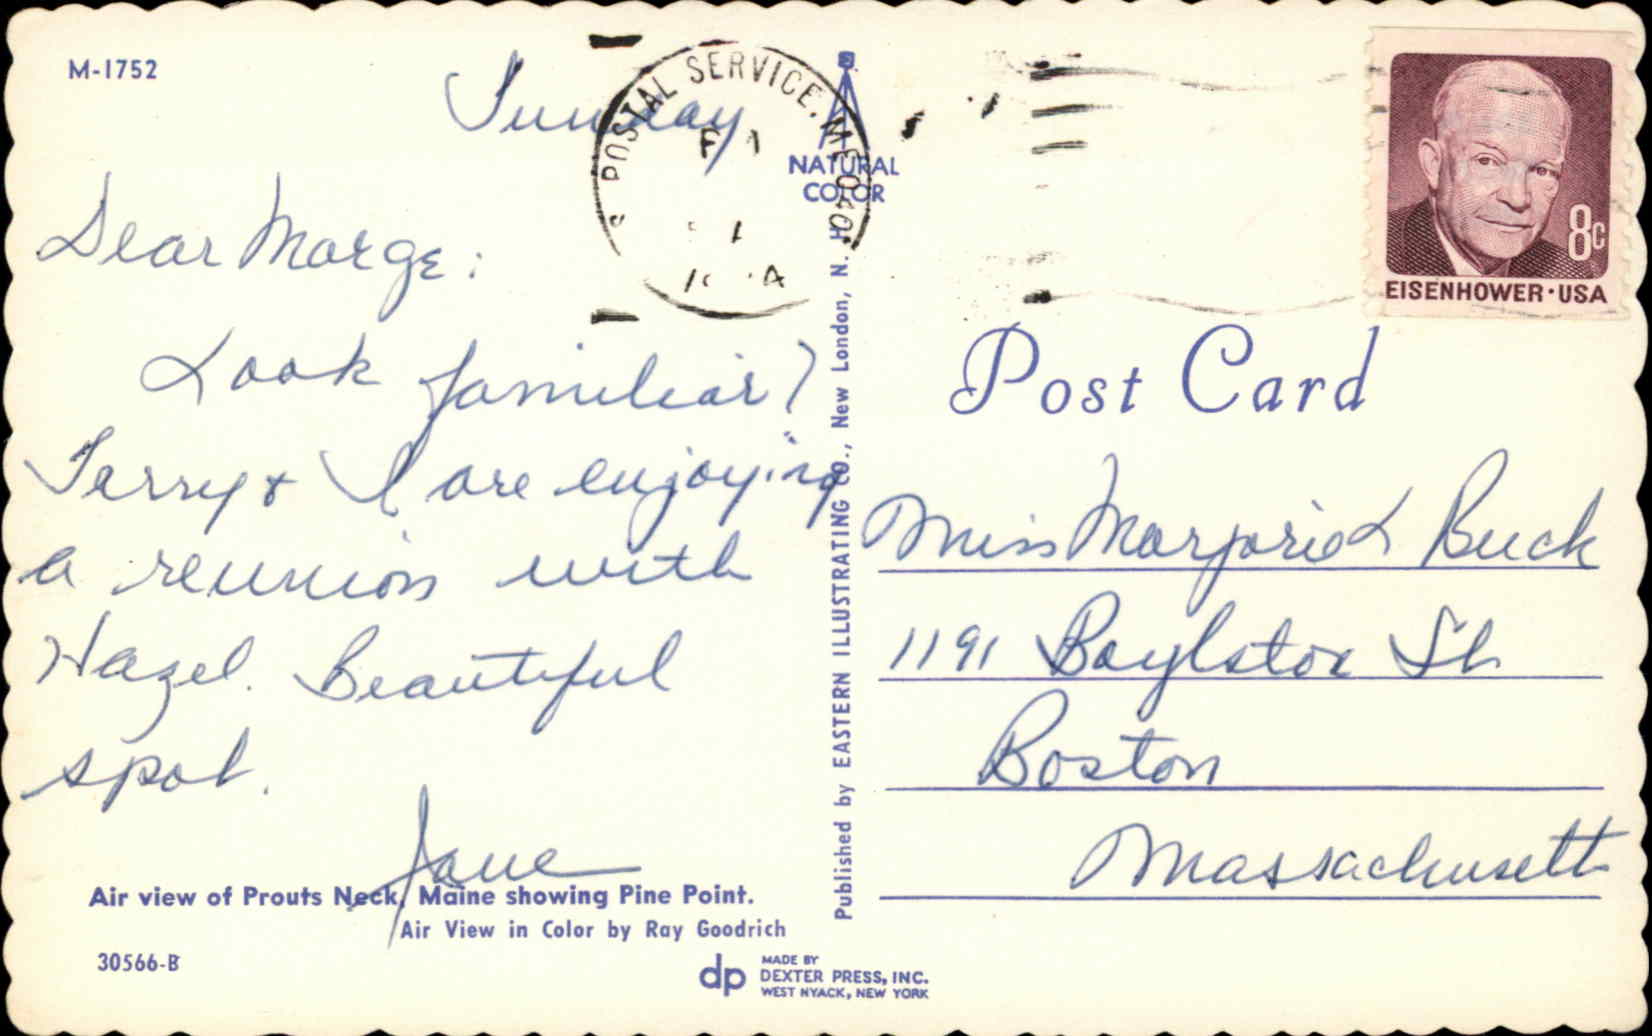 M-1752
Sunday
Dear Marge:
Look familiar?
Terry & I are enjoying
a reunion with
Hazel. Beautiful
spot.
Jane
Air view of Prouts Neck, Maine showing Pine Point.
Air View in Color by Ray Goodrich
30566-B
POSTAL SERVICE, ME 040
NATURAL
COLOR
Published by EASTERN ILLUSTRATING CO., New London, N. H.
dp
MADE BY
DEXTER PRESS, INC.
WEST NYACK, NEW YORK
8c
EISENHOWER·USA
Post Card
Miss Marjorie L Buck
1191 Boylston St
Boston
Massachusetts